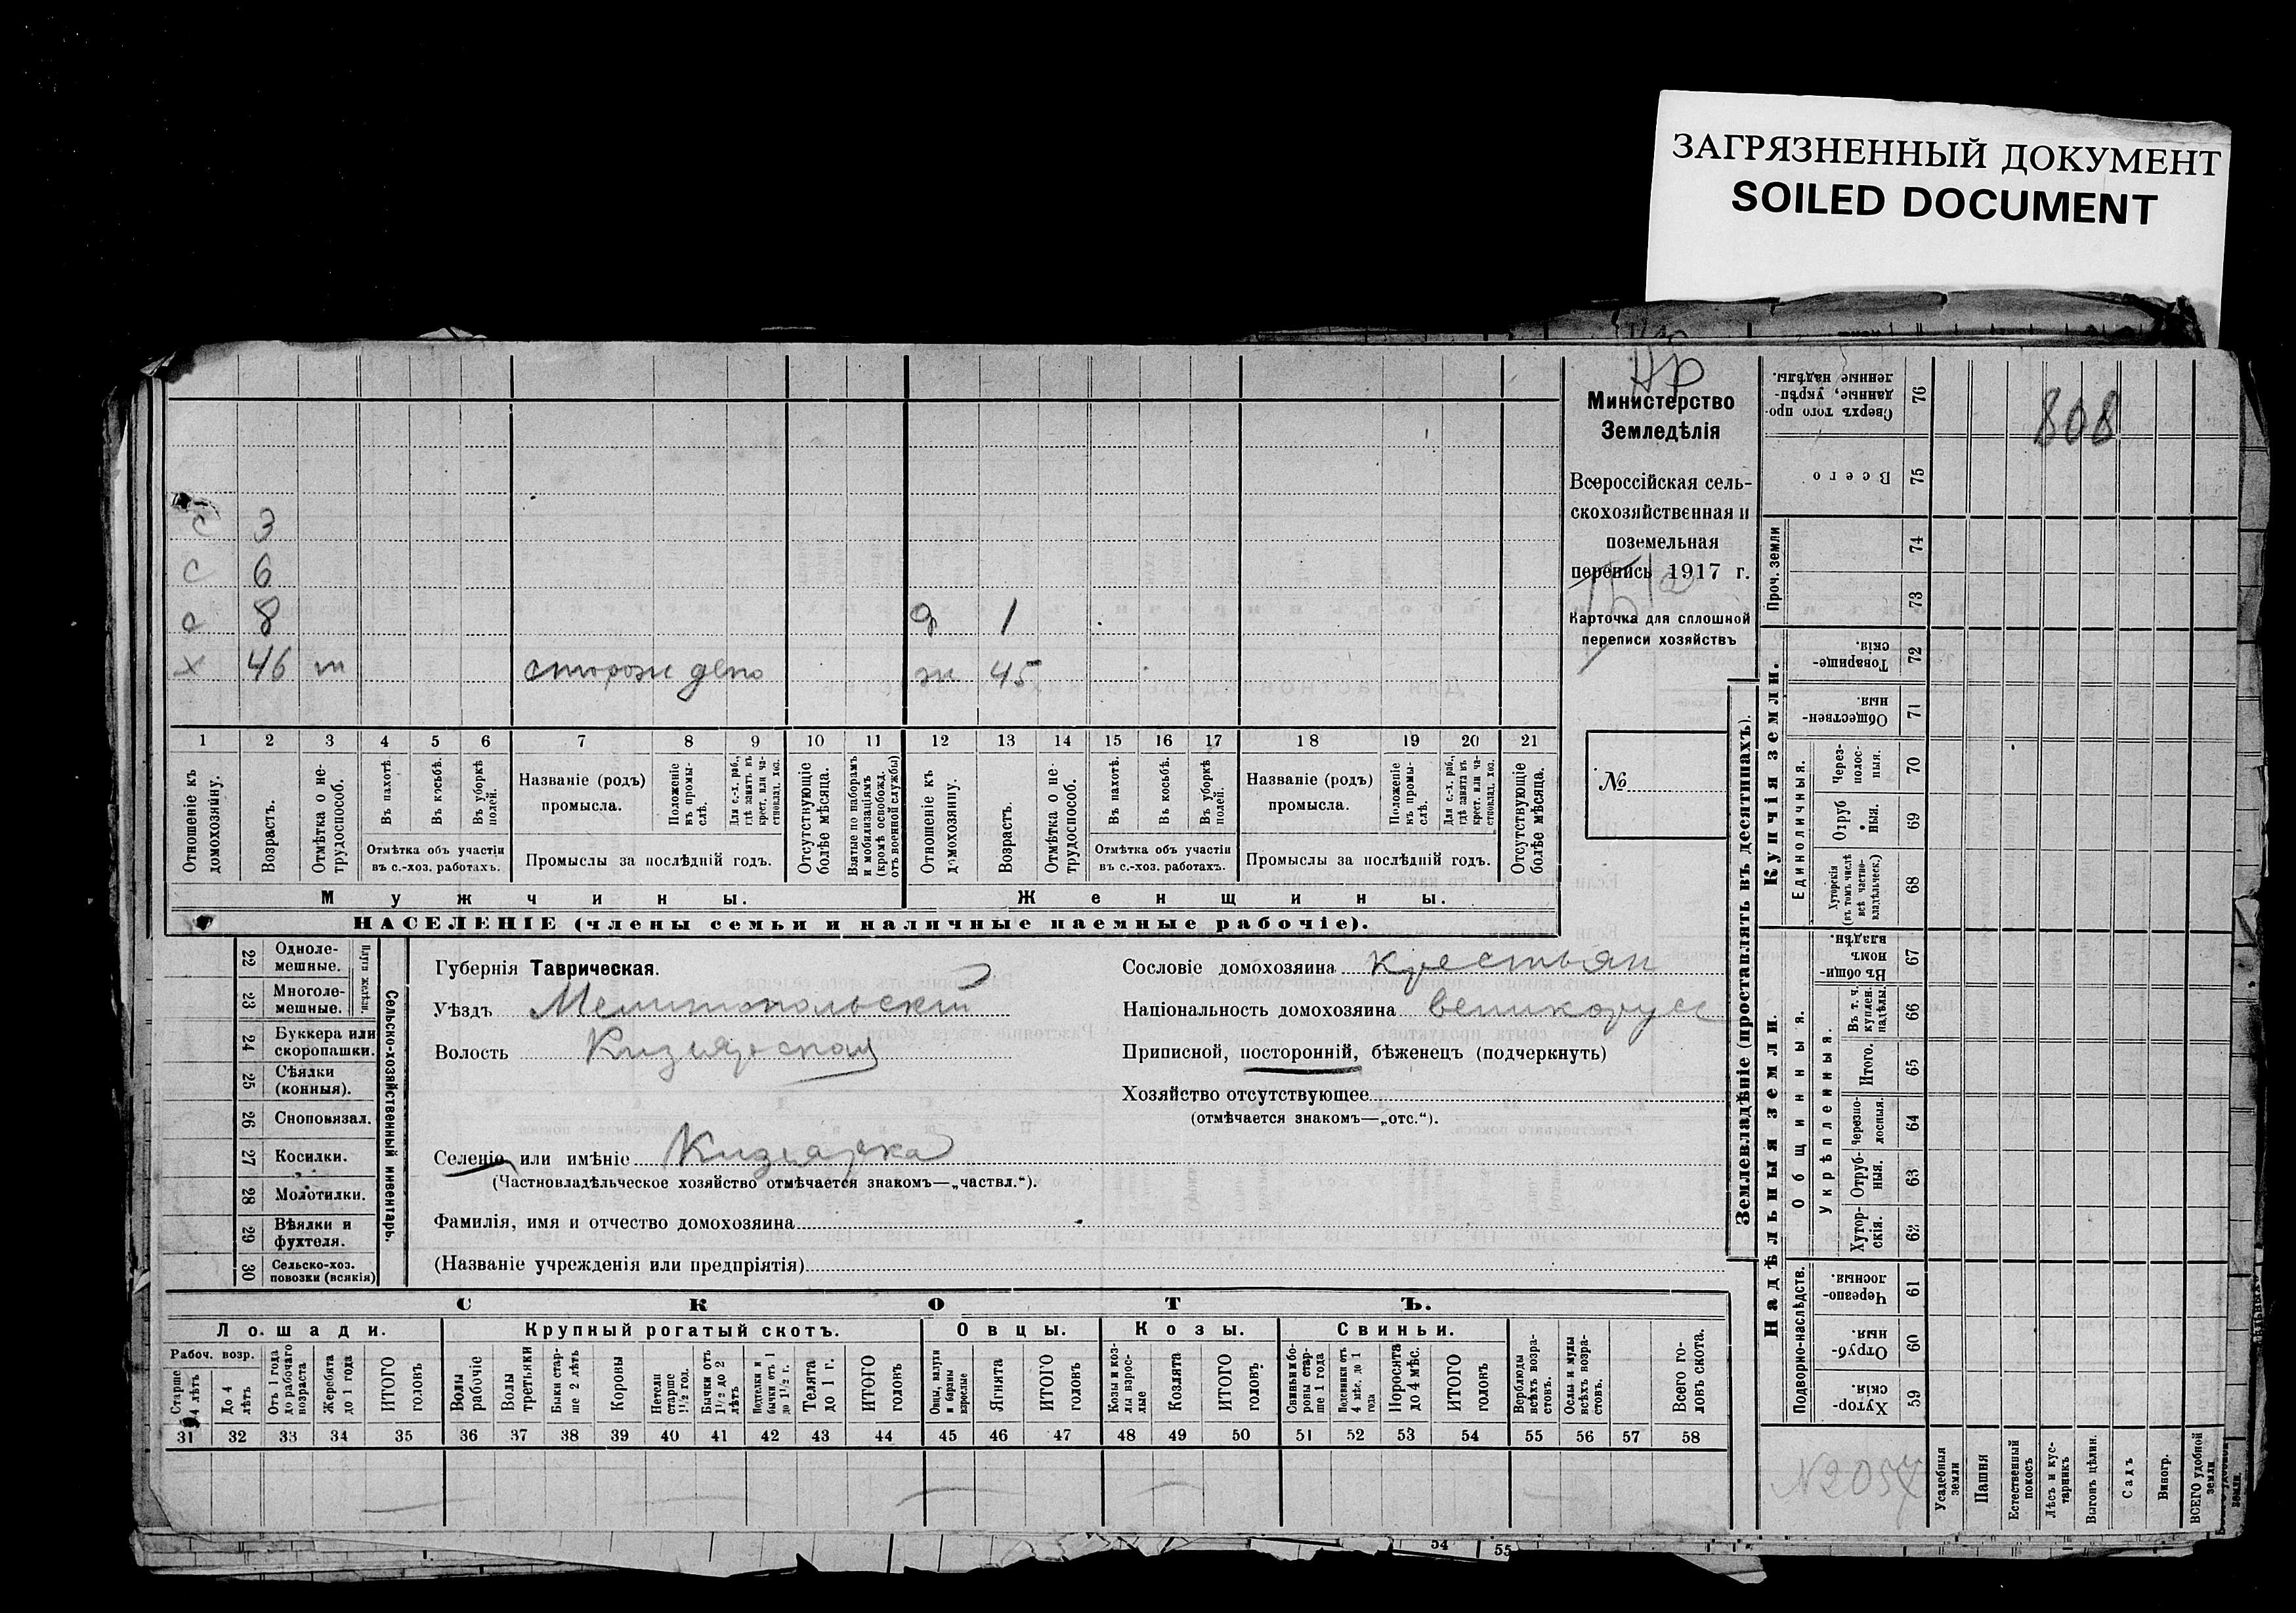 ЗАГРЯЗНЕННЫЙ ДОКУМЕНТ
SOILED DOCUMENT
Нр
808
Министерство
Земледѣлія
Всероссійская сель-
скохозяйственная и
поземельная
перепись 1917 г.
Карточка для сплошной
переписи хозяйствъ
№
с 3
с 6
с 8 д 1
х 46 т сторож депо ж 45
1 2 3 4 5 6 7 8 9 10 11 12 13 14 15 16 17 18 19 20 21
Отношеніе къ домохозяину.
Возрастъ.
Отмѣтка о не-трудоспособ.
Въ пахотѣ.
Въ косьбѣ.
Въ уборкѣ полей.
Отмѣтка объ участіи
въ с.-хоз. работахъ.
Названіе (родъ)
промысла.
Положеніе въ промы-слѣ.
Для с.-х. раб., гдѣ занятъ въ крест. или ча-стновлад. хоз.
Промыслы за послѣдній годъ.
Отсутствующіе болѣе мѣсяца.
Взятые по наборамъ и мобилизаціямъ (кромѣ освобожд. отъ военной службы)
Отношеніе къ домохозяину.
Возрастъ.
Отмѣтка о не-трудоспособ.
Въ пахотѣ.
Въ косьбѣ.
Въ уборкѣ полей.
Отмѣтка объ участіи
въ с.-хоз. работахъ.
Названіе (родъ)
промысла.
Положеніе въ промы-слѣ.
Для с.-х. раб., гдѣ занята въ крест. или ча-стновлад. хоз.
Промыслы за послѣдній годъ.
Отсутствующіе болѣе мѣсяца.
Мужчины. Женщины.
НАСЕЛЕНІЕ (члены семьи и наличные наемные рабочіе).
Сельско-хозяйственный инвентарь.
Плуги желѣзн.
22 Одноле-мешные.
23 Многоле-мешные.
24 Буккера или скоропашки.
25 Сѣялки (конныя).
26 Сноповязал.
27 Косилки.
28 Молотилки.
29 Вѣялки и фухтеля.
30 Сельско-хоз. повозки (всякія)
Губернія Таврическая.
Уѣздъ Мелитопольскій
Волость Кизиярская
Селеніе или имѣніе Кизиярка
(Частновладѣльческое хозяйство отмѣчается знакомъ—„частвл.“).
Фамилія, имя и отчество домохозяина
(Названіе учрежденія или предпріятія)
Сословіе домохозяина крестьян
Національность домохозяина великорусс
Приписной, посторонній, бѣженецъ (подчеркнуть)
Хозяйство отсутствующее
(отмѣчается знакомъ—„отс.“).
СКОТЪ.
Лошади. Крупный рогатый скотъ. Овцы. Козы. Свиньи.
Рабоч. возр.
Старше 4 лѣтъ
До 4 лѣтъ
Отъ 1 года до рабочаго возраста
Жеребята до 1 года
ИТОГО головъ
Волы рабочіе
Волы третьяки
Быки стар-ше 2 лѣтъ
Коровы
Нетели старше 1½ год.
Бычки отъ 1½ до 2 лѣтъ
Подтелки и бычки отъ 1 до 1½ г.
Телята до 1 г.
ИТОГО головъ
Овцы, валухи и бараны взрослые
Ягнята
ИТОГО головъ
Козы и коз-лы взрос-лые
Козлята
ИТОГО головъ.
Свиньи и бо-ровы стар-ше 1 года
Подсвинки отъ 4 мѣс. до 1 года
Поросята до 4 мѣс.
ИТОГО головъ
Верблюды всѣхъ возра-стовъ.
Ослы и мулы всѣхъ возра-стовъ.
Всего го-ловъ скота.
31 32 33 34 35 36 37 38 39 40 41 42 43 44 45 46 47 48 49 50 51 52 53 54 55 56 57 58
Землевладѣніе (проставлять въ десятинахъ).
Купчія земли.
Надѣльныя земли.
Сверхъ того про-данные, укрѣп-ленные надѣлы. 76
Всего 75
Проч. земли
74
73
Товарище-скія. 72
Обществен-ныя. 71
Единоличныя.
Через-полос-ныя. 70
Отруб-ныя. 69
Хуторскія (въ томъ числѣ всѣ частно-владѣльческ.) 68
Общинныя.
Въ общи-номъ владѣн. 67
Укрѣпленныя.
Въ т. ч. куплен. надѣлы. 66
Итого. 65
Черезпо-лосныя. 64
Отруб-ныя. 63
Хутор-скія. 62
Подворно-наслѣдств.
Черезпо-лосныя. 61
Отруб-ныя. 60
Хутор-скія. 59
N2057
Усадебныя земли
Пашня
Естественный покосъ
Лѣсъ и кус-тарникъ
Выгонъ цѣлин.
Садъ
Виногр.
ВСЕГО удобной земли
54 55